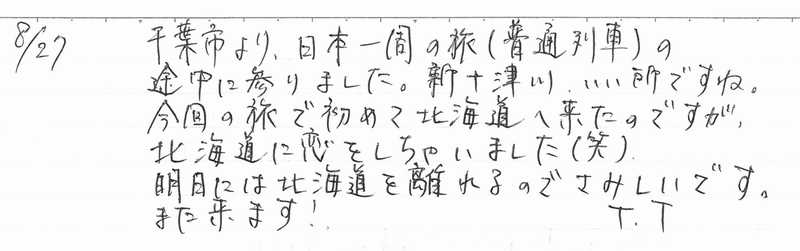 8/27 千葉市より、日本一周の旅(普通列車)の
途中に参りました。新十津川、いい所ですね。
今回の旅で初めて北海道へ来たのですが、
北海道に恋をしちゃいました(笑)
明日には北海道を離れるのでさみしいです。
また来ます! T.T